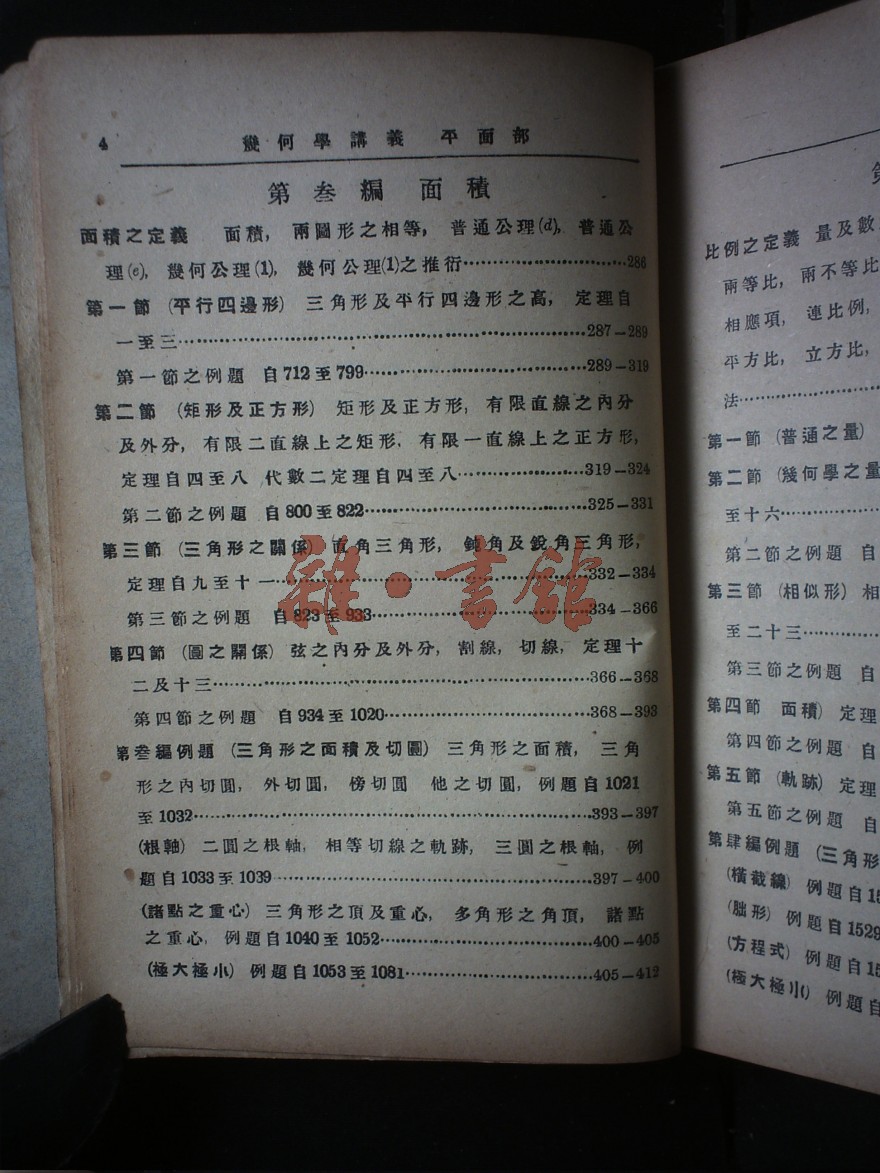 4
幾何學講義 平面部
第叁編 面積
面積之定義 面積, 兩圖形之相等, 普通公理(d), 普通公
理(e), 幾何公理(1), 幾何公理(1)之推衍…………………286
第一節 (平行四邊形) 三角形及平行四邊形之高, 定理自
一至三……………………………………………………287—289
第一節之例題 自712至799…………………………289—319
第二節 (矩形及正方形) 矩形及正方形, 有限直線之內分
及外分, 有限二直線上之矩形, 有限一直線上之正方形,
定理自四至八 代數二定理自四至八………………319—324
第二節之例題 自800至822…………………………325—331
第三節 (三角形之關係) 直角三角形, 鈍角及銳角三角形,
定理自九至十一……………………………………332—334
第三節之例題 自823至933…………………………334—366
第四節 (圓之關係) 弦之內分及外分, 割線, 切線, 定理十
二及十三……………………………………………366—368
第四節之例題 自934至1020…………………………368—393
第叁編例題 (三角形之面積及切圓) 三角形之面積, 三角
形之內切圓, 外切圓, 傍切圓 他之切圓, 例題自1021
至1032………………………………………………393—397
(根軸) 二圓之根軸, 相等切線之軌跡, 三圓之根軸, 例
題自1033至1039……………………………………397—400
(諸點之重心) 三角形之頂及重心, 多角形之角頂, 諸點
之重心, 例題自1040至1052…………………………400—405
(極大極小) 例題自1053至1081………………………405—412
雜·書館
比例之定義 量及數
兩等比, 兩不等比
相應項, 連比例,
平方比, 立方比,
法……………
第一節 (普通之量)
第二節 (幾何學之量
至十六…………
第二節之例題 自
第三節 (相似形) 相
至二十三…………
第三節之例題 自
第四節 面積) 定理
第四節之例題 自
第五節 (軌跡) 定理
第五節之例題 自
第肆編例題 (三角形
(橫截線) 例題自15
(朏形) 例題自1529
(方程式) 例題自15
(極大極小) 例題自